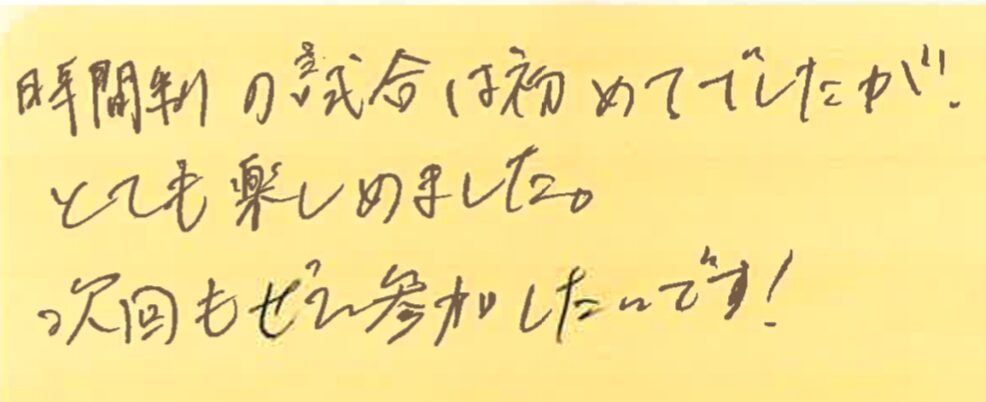 時間制の試合は初めてでしたが、
とても楽しめました。
次回もぜひ参加したいです!